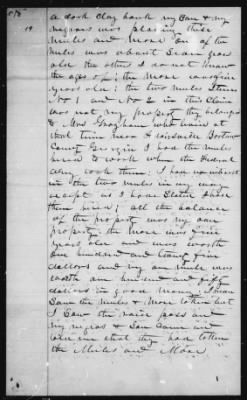 a dark clay bank my Son & my
negroes was plowing these
mules and Mare One of the
mules was about Seven years
old the other I do not know
the age of; the Mare was five
years old; the two mules Items
No 1 and No 2 in this Claim
was not my property they belonged
to Mrs who lived at
that time near
County Georgia I had the mules
to work when the Federal
army took them; I had no interest
in the two mules in any way
except as I have Stated
; all the balance
of the property was my own
property; the Mare was five
years old and was worth
One hundred and twenty five
dollars and my own mule was
worth one hundred and fifty
dollars in good money; I
Saw the Mules & Mare taken but
I Saw the pass and
my negros & Son Came and
told me that they had taken
the Mules and Mare